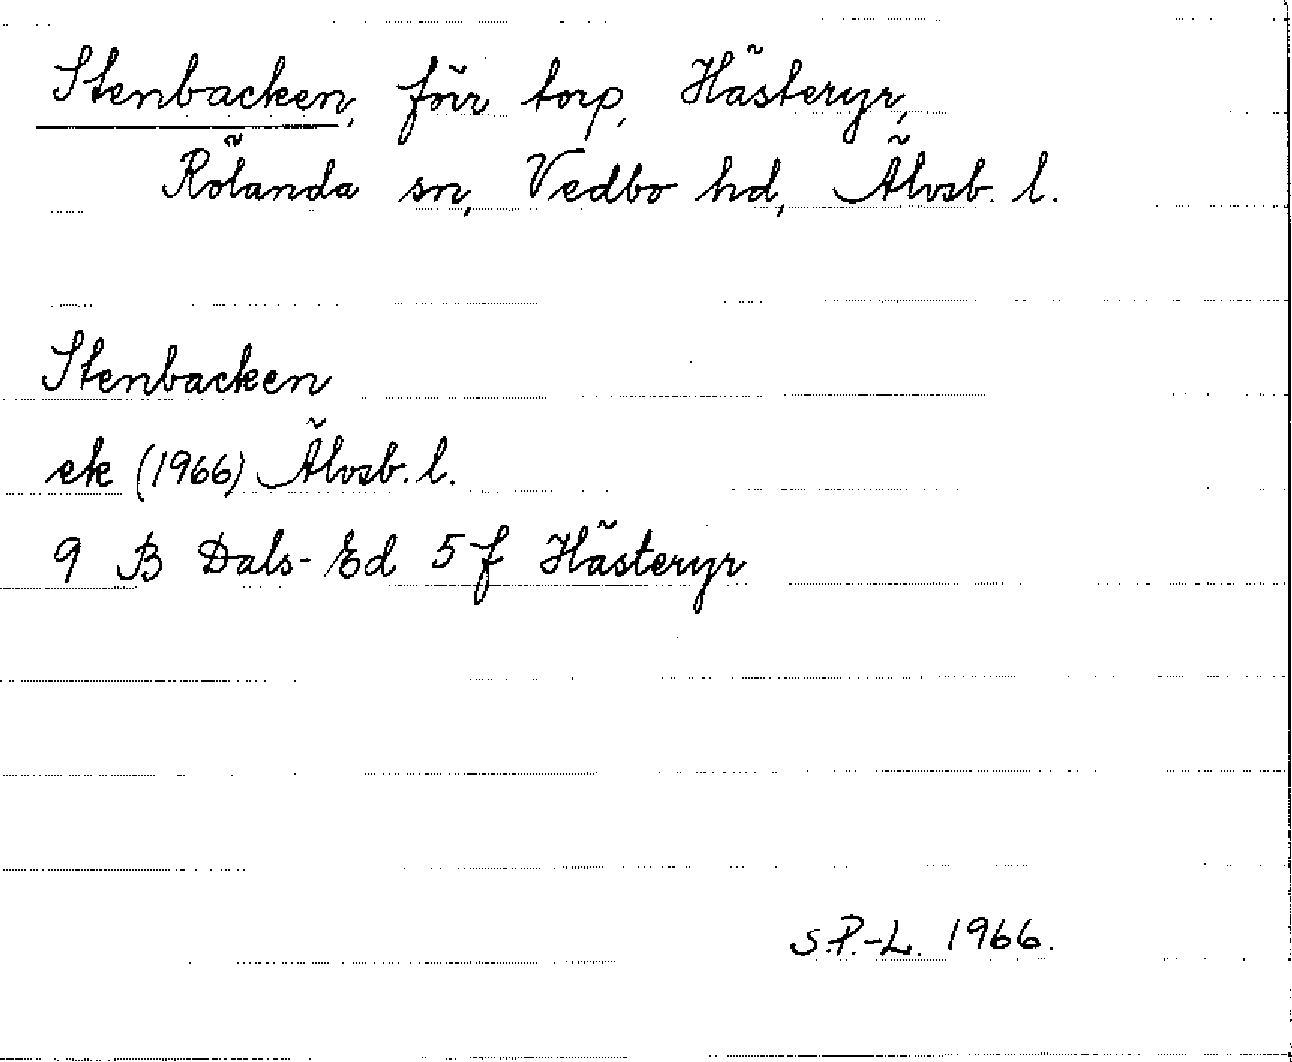 Stenbacken, förr torp, Hästeryr,
Rölanda sn, Vedbo hd, Älvsb. l.
Stenbacken
ek (1966) Älvsb. l.
9 B Dals-Ed 5 f Hästeryr
S.P.-L. 1966.